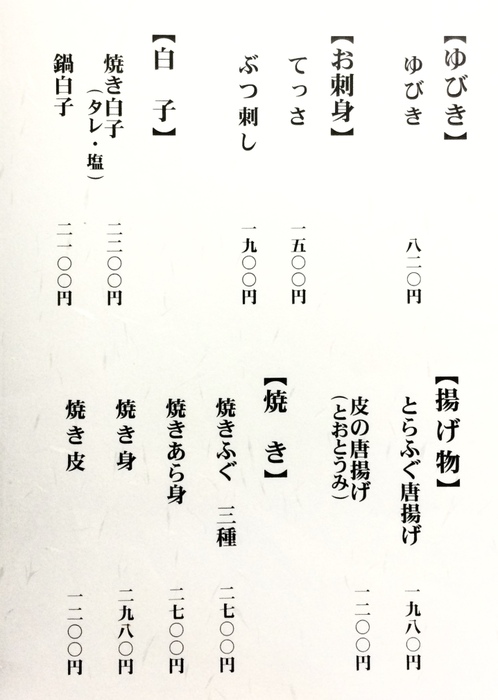 【ゆびき】
ゆびき 八二〇円
【お刺身】
てっさ 一五〇〇円
ぶつ刺し 一九〇〇円
【白 子】
焼き白子 二二〇〇円
(タレ・塩)
鍋白子 二一〇〇円
【揚げ物】
とらふぐ唐揚げ 一九八〇円
皮の唐揚げ 一二〇〇円
(とおとうみ)
【焼 き】
焼きふぐ 三種 二七〇〇円
焼きあら身 二七〇〇円
焼き身 二九八〇円
焼き皮 一二〇〇円